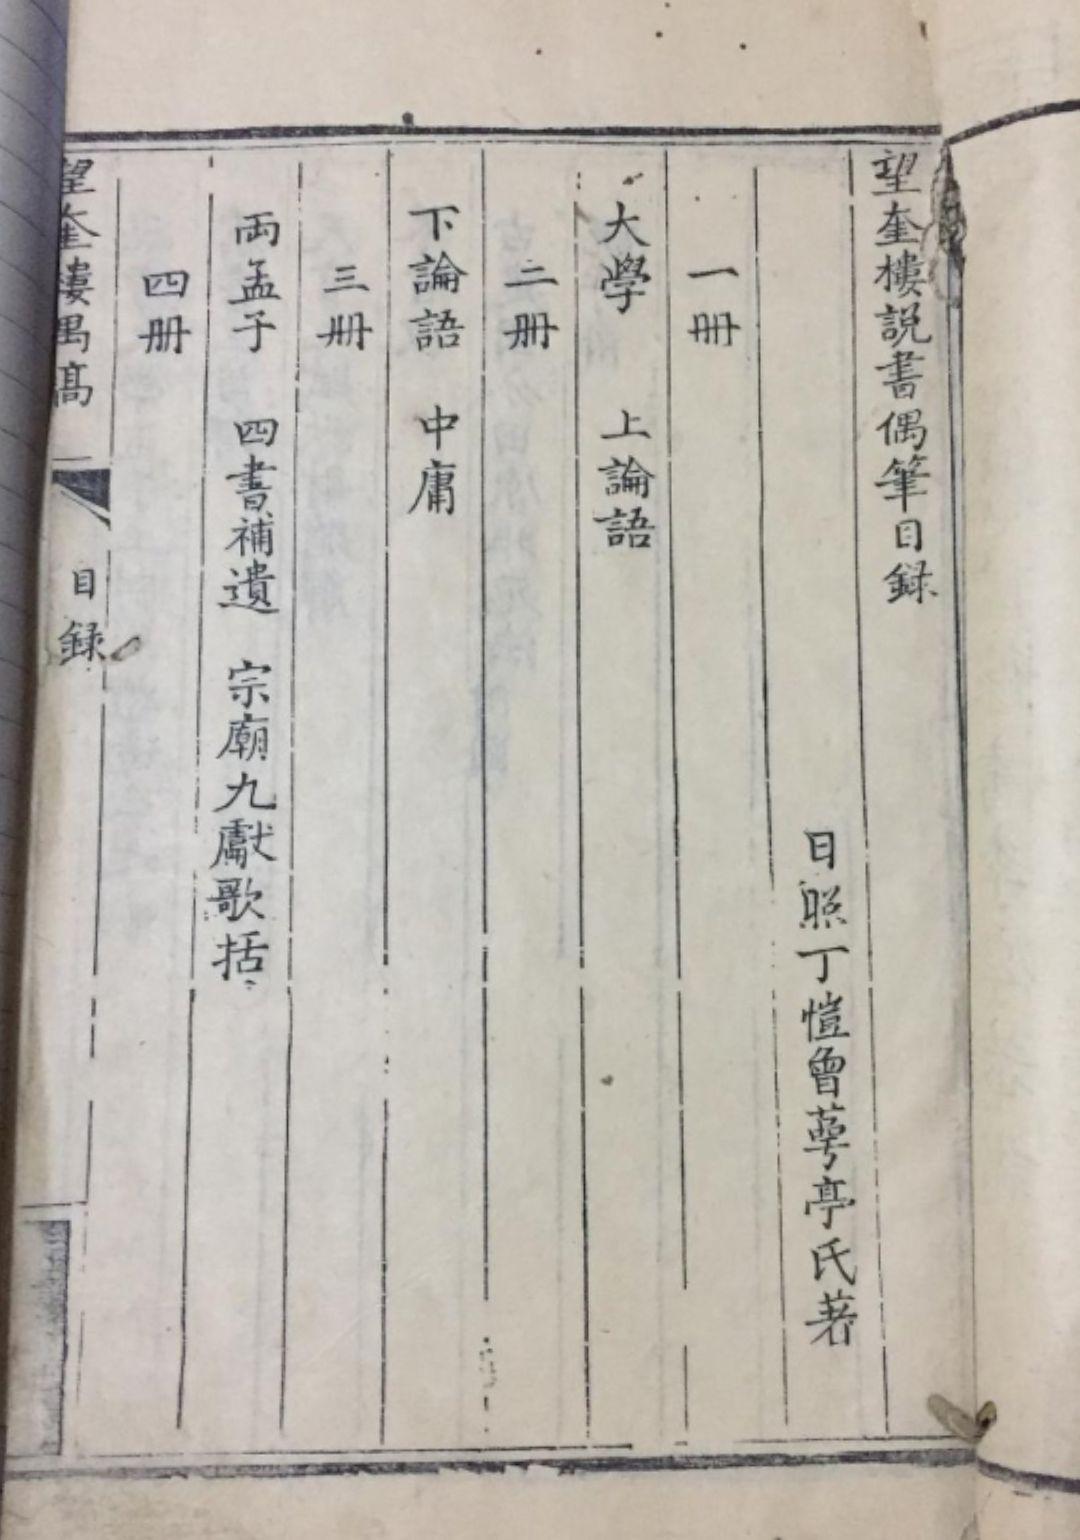 望奎樓説書偶筆目録
日照丁愷曾蕚亭氏著
一册
大學 上論語
二册
下論語 中庸
三册
両孟子 四書補遺 宗廟九獻歌括
四册
望奎樓遇髙
目録